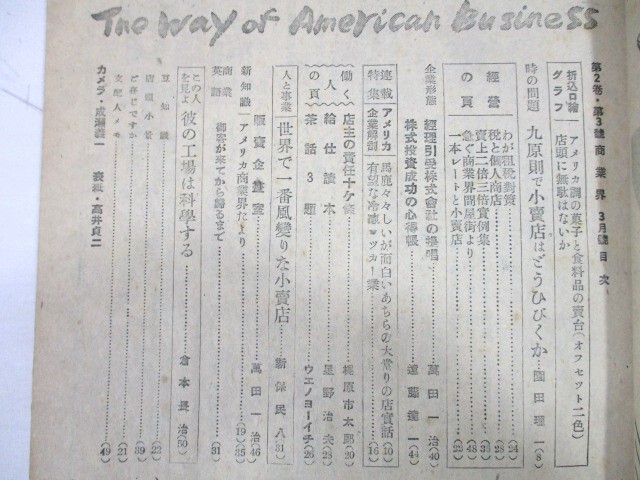 The Way of American Business
第2巻・第3號 商業界 3月號目次
折込口繪
グラフ
アメリカ調の菓子と食料品の賣台(オフセット二色)
店頭に無駄はないか
時の問題 九原則で小賣店はどうひびくか 園田理一(8)
經營の頁
わが租税對策(24)
税と個人商店(28)
賣上二倍三倍實例集(38)
急ぐ商業界問屋街より(48)
一本レートと小賣店(22)
企業形態
經理引受株式會社の提唱 萬田一治(40)
株式投資成功の心得帳 遠藤健一(44)
連載 アメリカ 馬鹿々々しいが面白いあちらの大當りの店實話(10)
特集 企業解剖 有望な冷凍ロッカー業(16)
働く人の頁
店主の責任十ケ條 桃原市太郎(20)
給仕讀本 星野治夫(28)
茶話3題 ウエノヨーイチ(26)
人と事業 世界で一番風變りな小賣店 新保民八(31)
販賣企畫室 萬田一治(46)
新知識 アメリカ商業界だより(19)(35)
商業英語 御客が來てから歸るまで(31)
この人を見よ 彼の工場は科學する 倉本長治(50)
豆知識(22)
店頭小景(39)
ご存じですか(21)
支配人メモ(49)
カメラ・成瀬義一 表紙・高井貞二